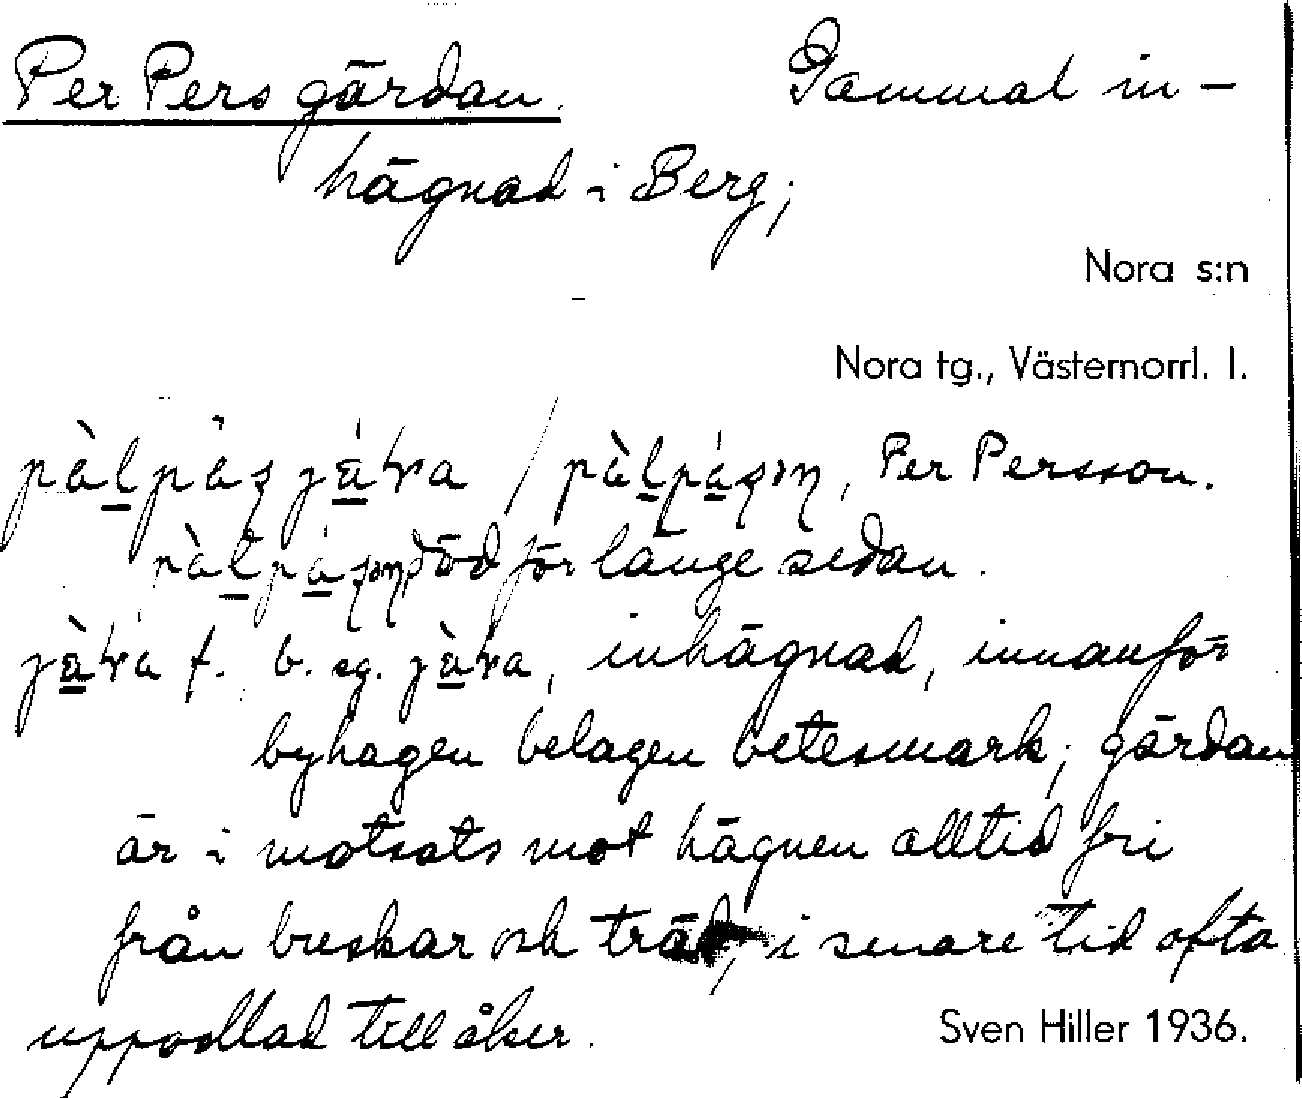 Per Pers gärdan. Gammal in-
hägnad i Berg;
Nora s:n
Nora tg., Västernorrl. l.
Per Persson.
död för länge sedan.
f. b. sg. inhägnad, innanför
byhagen belagen betesmark; gärdan
är i motsats mot hägnen alltid fri
från buskar och träd, i senare tid ofta
uppodlad till åker.
Sven Hiller 1936.